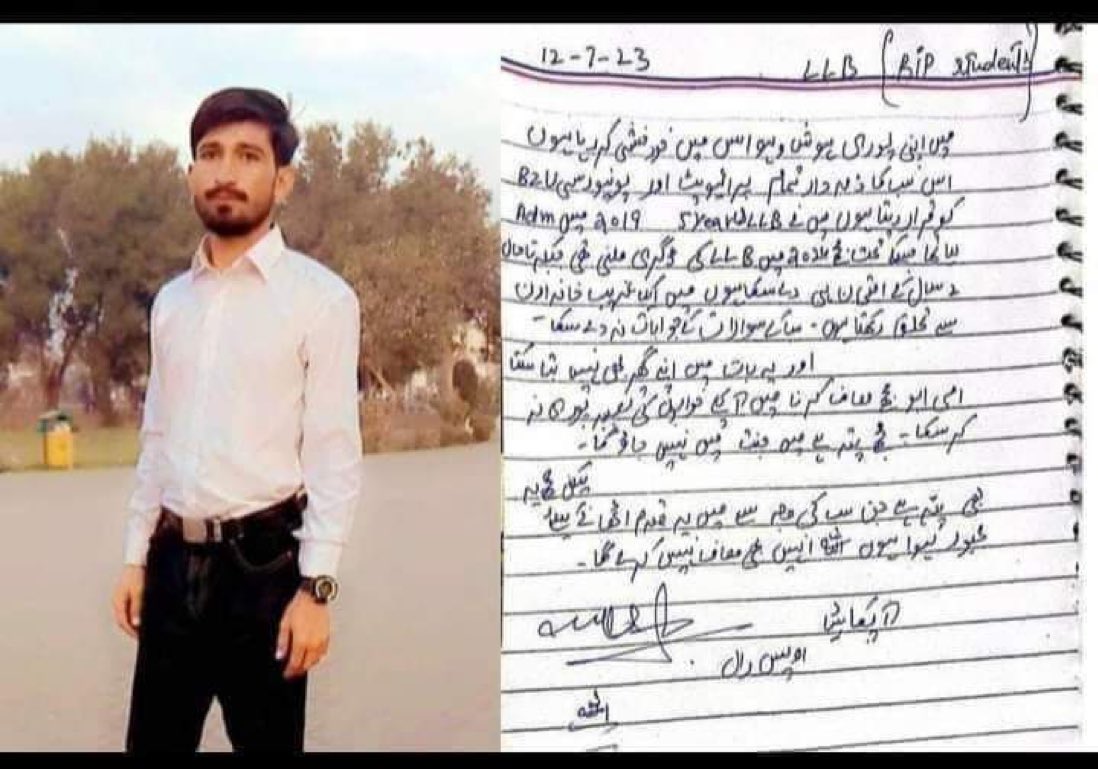 12-7-23 LLB (RIP students)
میں اپنی پوری ہوش و ہواس میں خودکشی کر رہا ہوں
اس سب کا ذمہ دار تمام پرائیویٹ اور یونیورسٹی BZU
کو قرار دیتا ہوں میں نے 5 year LLB 2019 میں Adm
لیا تھا مجھے 2024 میں LLB کی ڈگری ملنی تھی تاحال
2 سال کے ہی دے سکا ہوں میں ایک غریب خاندان
سے تعلق رکھتا ہوں۔ سوالات کے جوابات نہ دے سکا۔
اور یہ بات میں اپنے گھر بھی نہیں بتا سکتا
امی ابو مجھے معاف کرنا میں آپ کے خوابوں کی تعبیر پوری نہ
کر سکا۔ مجھے پتہ ہے میں جنت میں نہیں جاؤنگا۔
لیکن مجھے یہ
بھی پتہ ہے جن سب کی وجہ سے میں یہ قدم اٹھانے پر
مجبور ہوا ہوں اللہ انہیں بھی معاف نہیں کرے گا۔
آپکا بیٹا
اویس
اللہ